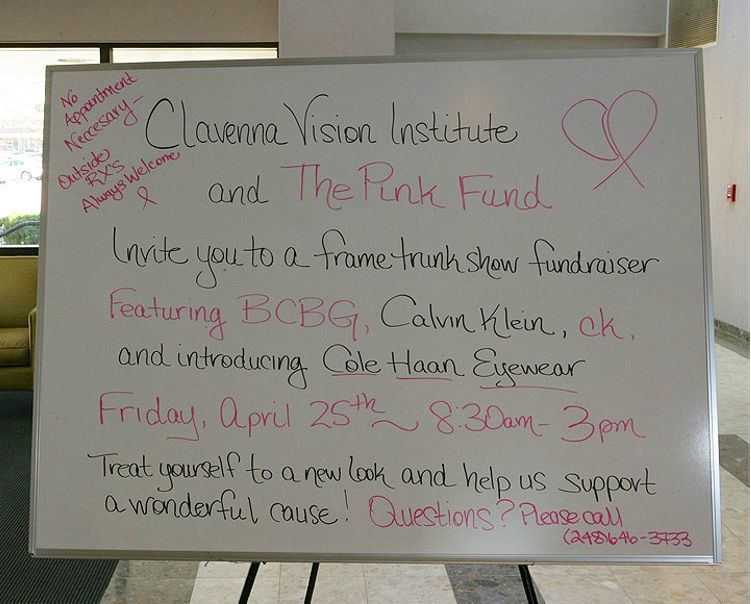 No
Appointment
Neccesary—
Outside
RX's
Always Welcome
Clavenna Vision Institute
and The Pink Fund
Invite you to a frame trunk show fundraiser
Featuring BCBG, Calvin Klein, ck,
and introducing Cole Haan Eyewear
Friday, April 25th ~ 8:30am - 3pm
Treat yourself to a new look and help us support
a wonderful cause! Questions? Please call
(248)646-3733